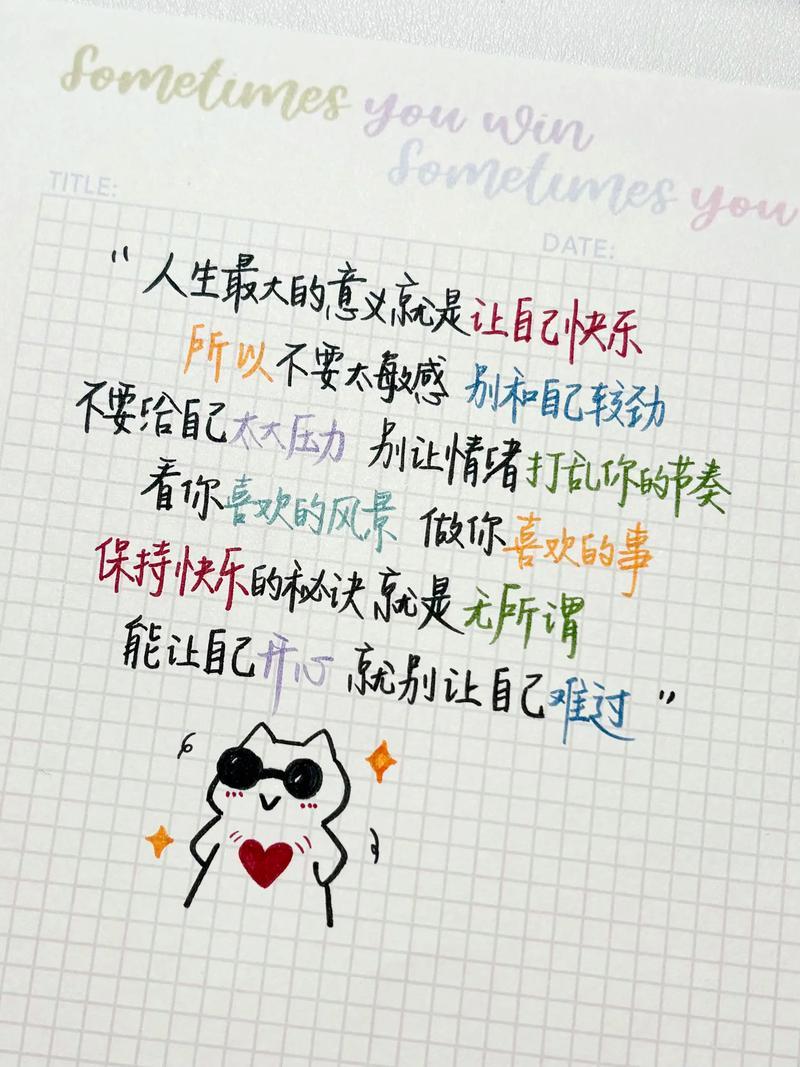 Sometimes you win
Sometimes you
TITLE:
DATE:
“人生最大的意义就是让自己快乐
所以不要太敏感 别和自己较劲
不要给自己太大压力 别让情绪打乱你的节奏
看你喜欢的风景 做你喜欢的事
保持快乐的秘诀就是无所谓
能让自己开心 就别让自己难过”